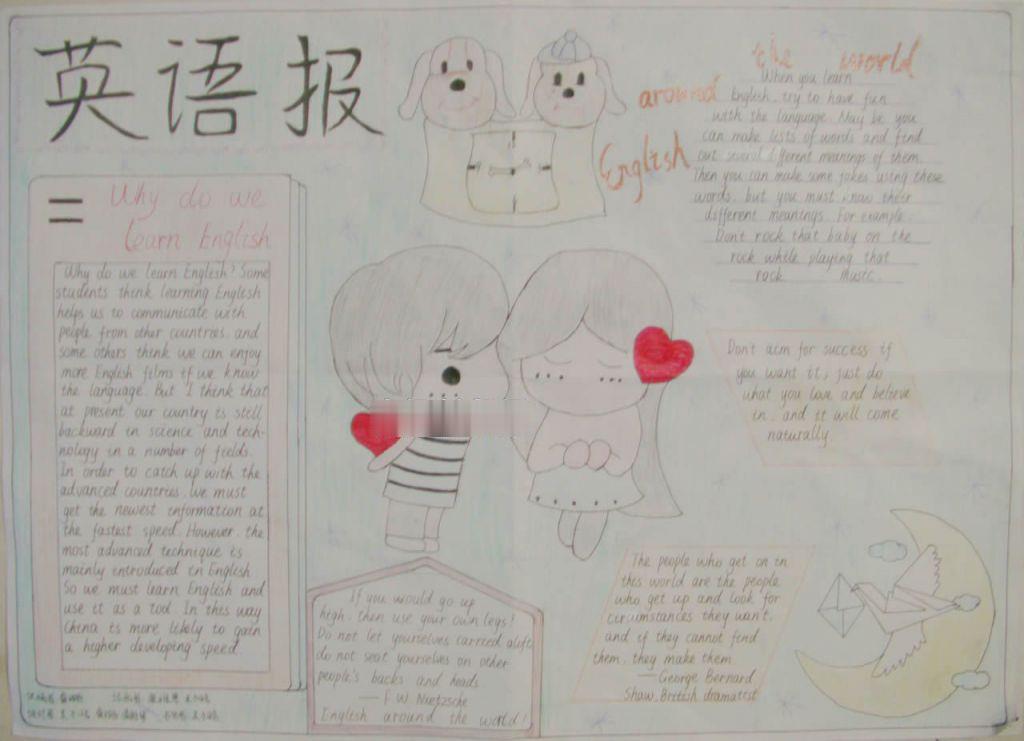 英语报
Why do we
learn English
Why do we learn English? Some
students think learning English
helps us to communicate with
people from other countries. and
some others think we can enjoy
more English films if we know
the language. But I think that
at present our country is still
backward in science and tech-
nology in a number of fields.
In order to catch up with the
advanced countries. We must
get the newest information at
the fastest speed. However. the
most advanced technique is
mainly introduced in English.
So we must learn English and
use it as a tool. In this way
China is more likely to gain
a higher developing speed.
English around the world
When you learn
English, try to have fun
with the language. May be you
can make lists of words and find
out several different meanings of them.
Then you can make some jokes using these
words. but you must know their
different meanings. For example.
Don't rock that baby on the
rock while playing that
rock music.
Don't aim for success if
you want it; just do
what you love and believe
in. and it will come
naturally.
If you would go up
high, then use your own legs!
Do not let yourselves carried aloft
do not seat yourselves on other
people's backs and heads
—F.W. Nietzsche
English around the world!
The people who get on in
this world are the people
who get up and look for
circumstances they want.
and if they cannot find
them. they make them
—George Bernard
Shaw, British dramatist